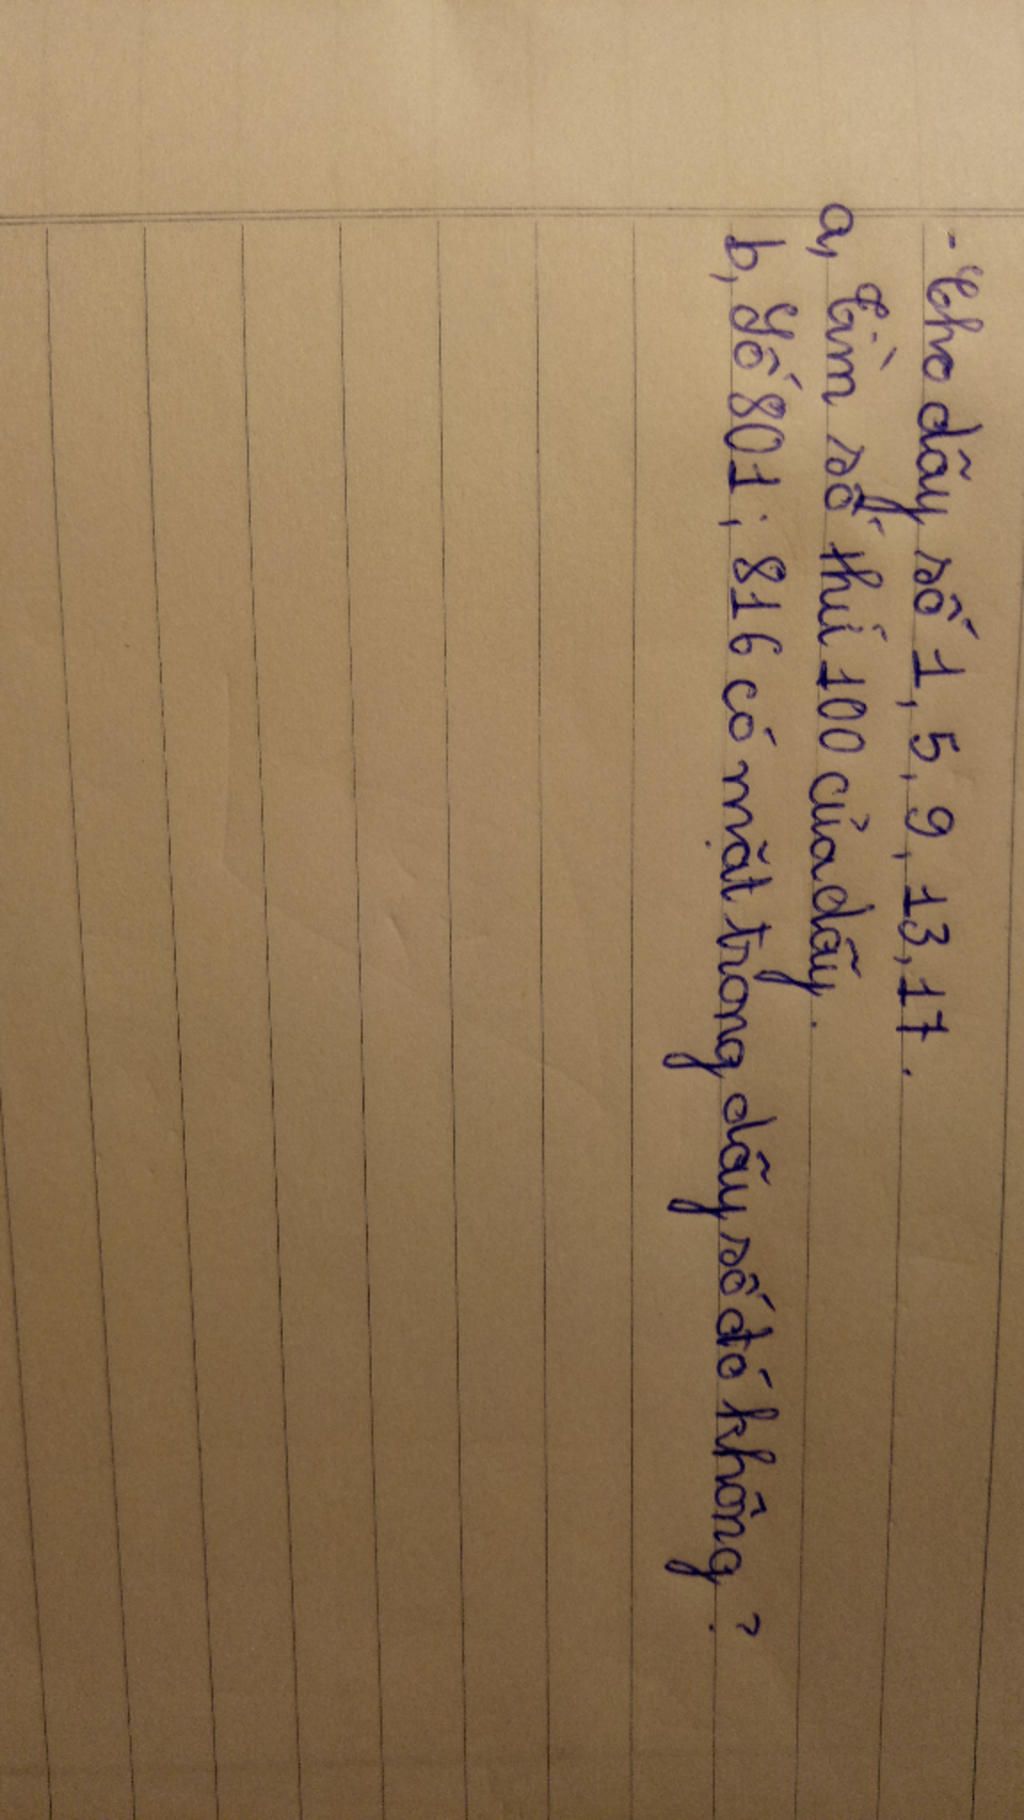 - Cho dãy số 1, 5, 9, 13, 17.
a, Tìm số thứ 100 của dãy.
b, Số 801; 816 có mặt trong dãy số đó không?